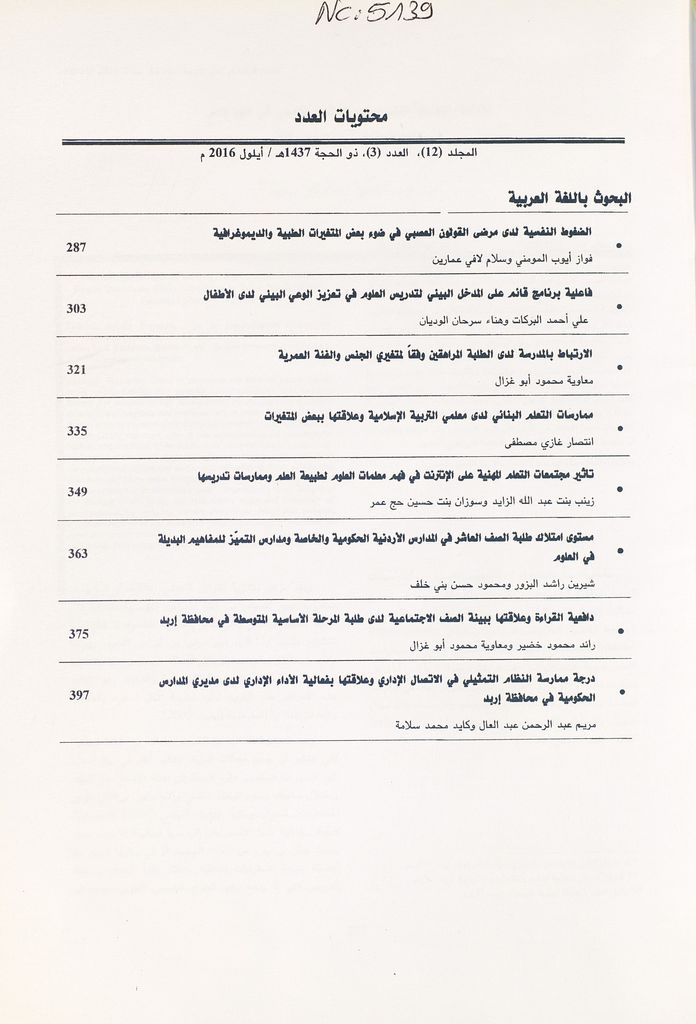 Nc: 5139
محتويات العدد
المجلد (12)، العدد (3)، ذو الحجة 1437هـ / أيلول 2016 م
البحوث باللغة العربية
الضغوط النفسية لدى مرضى القولون العصبي في ضوء بعض المتغيرات الطبية والديموغرافية
287
فواز أيوب المومني وسلام لافي عمارين
فاعلية برنامج قائم على المدخل البيئي لتدريس العلوم في تعزيز الوعي البيئي لدى الأطفال
303
علي أحمد البركات وهناء سرحان الوديان
الارتباط بالمدرسة لدى الطلبة المراهقين وفقاً لمتغيري الجنس والفئة العمرية
321
معاوية محمود أبو غزال
ممارسات التعلم البنائي لدى معلمي التربية الإسلامية وعلاقتها ببعض المتغيرات
335
انتصار غازي مصطفى
تأثير مجتمعات التعلم المهنية على الإنترنت في فهم معلمات العلوم لطبيعة العلم وممارسات تدريسها
349
زينب بنت عبد الله الزايد وسوزان بنت حسين حج عمر
مستوى امتلاك طلبة الصف العاشر في المدارس الأردنية الحكومية والخاصة ومدارس التميّز للمفاهيم البديلة
في العلوم
363
شيرين راشد البزور ومحمود حسن بني خلف
دافعية القراءة وعلاقتها ببيئة الصف الاجتماعية لدى طلبة المرحلة الأساسية المتوسطة في محافظة إربد
375
رائد محمود خضير ومعاوية محمود أبو غزال
درجة ممارسة النظام التمثيلي في الاتصال الإداري وعلاقتها بفعالية الأداء الإداري لدى مديري المدارس
الحكومية في محافظة إربد
397
مريم عبد الرحمن عبد العال وكايد محمد سلامة